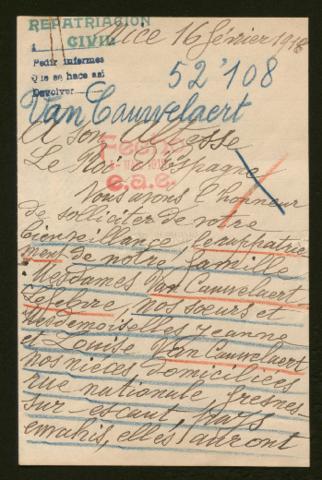 REPATRIACION
CIVIL
Nice 16 février 1918
á
Pedir informes
Que se hace asi
Devolver
52'108
Van Cauwelaert
A son Altesse
Le Roi d'Espagne
Fecha
c.a.e.
Nous avons l'honneur
de solliciter de votre
Bienveillance, le raphatrie
ment de notre famille
Mesdames Van Cauwelaert
Lefebvre, nos sœurs et
Mesdemoiselles Jeanne
et Louise Van Cauwelaert
nos nièces domiciliées
rue nationale fresnes
sur-escaut pays
envahis, elles auront